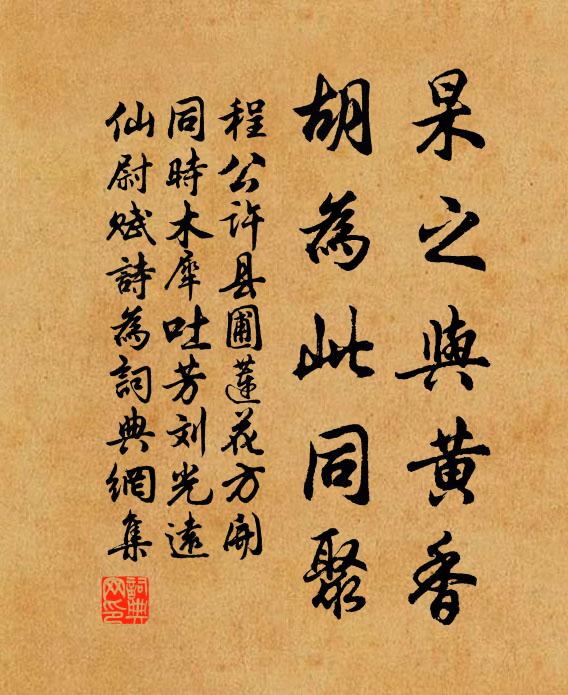 杲之與黄香
胡為此同聚
程公许县圃蓮花方開
同時木犀吐芳刘光遠
仙尉赋詩為詞典網集
詞典网印